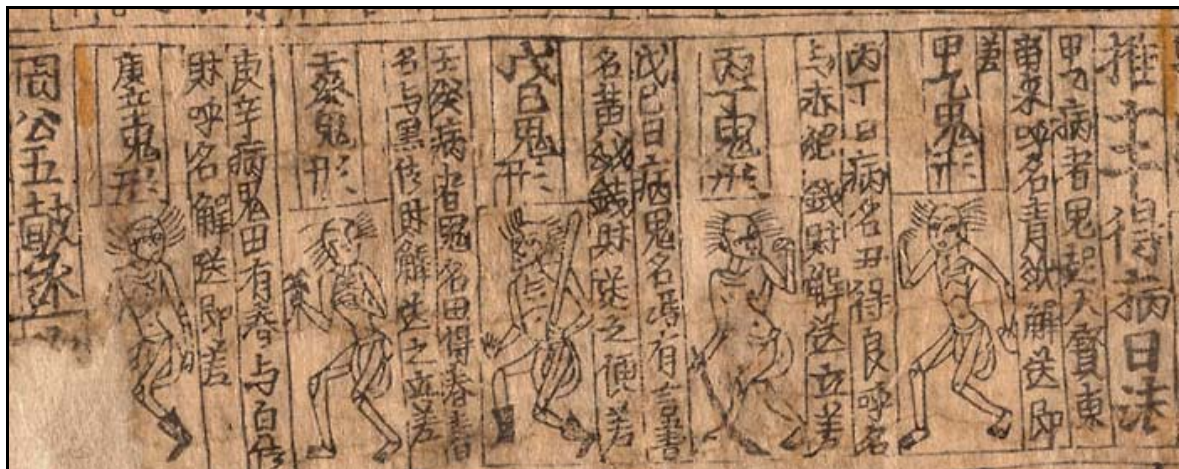 推十干得病日法
甲乙病者鬼起人賓東
來呼名青解送即
差
甲乙鬼形
丙丁日病名丑得良呼名
与赤錢財解送立差
丙丁鬼形
戊巳日病鬼名馮有言書
名黃錢財送之便差
戊巳鬼形
壬癸病者鬼名田得春書
名与黑財解送之立差
壬癸鬼形
庚辛病鬼田有春与白
財呼名解送即差
庚辛鬼形
周公五鼓逐